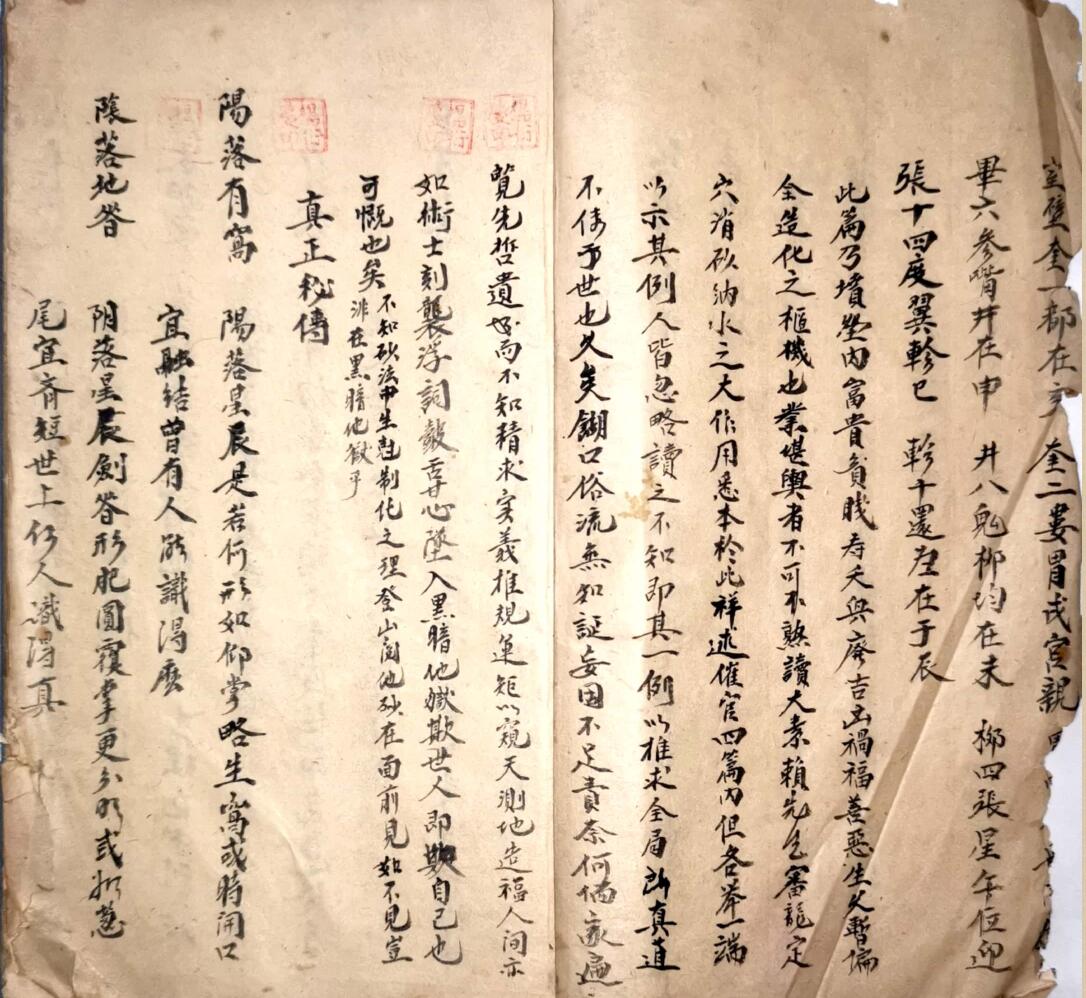 室壁奎一郡在亥 奎二婁胃戌宮親
畢六參嘴井在申 井八鬼柳均在未 柳四張星午位迎
張十四度翼軫巳 軫十還在于辰
此篇乃墳塋內富貴貧賤寿夭與廢吉凶禍福善惡生久暫偏
全造化之樞機也業堪輿者不可不熟讀大素賴先生審龍定
穴消砂納水之大作用悉本於此祥述催官四篇內但各举一端
以示其例人皆忽略讀之不知即其一例以推求全局所真道
不俦于世也久矣餬口俗流無知証妄因不足責奈何儒家遍
覽先哲遺而不知精求实義推規運矩以窺天測地造福人间亦
如術士刻襲浮詞鼓舌甘心墜入黑暗地獄欺世人即欺自己也
可慨也矣 不知砂法中生尅制化之理登山闾他砂在面前見如不見豈
非在黑暗地獄乎
真正秘傳
陽落有窩 陽落星辰是若何形如仰掌略生窩或時開口
宜融結曾有人能識得麽
陰落地答 阴落星辰劍答形肥圓覆掌更分明或拟葱
尾宜齐短世上何人識得真